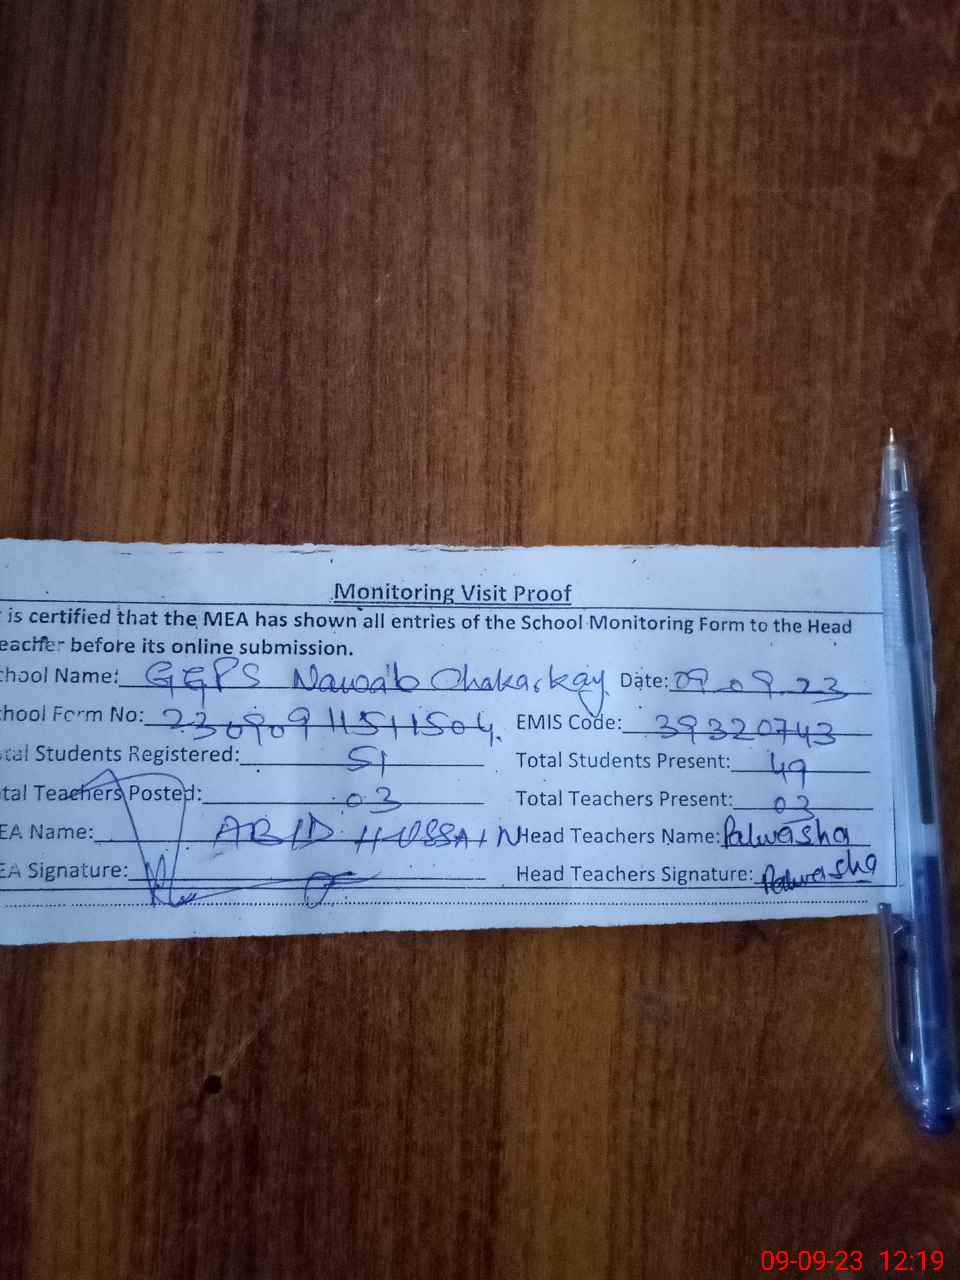 Monitoring Visit Proof
is certified that the MEA has shown all entries of the School Monitoring Form to the Head
eacher before its online submission.
chool Name: GGPS Nawab Chakarkay Date: 09.09.23
chool Form No: 23090911511504. EMIS Code: 39320743
tal Students Registered: 51 Total Students Present: 49
tal Teachers Posted: 03 Total Teachers Present: 03
EA Name: ABID HUSSAIN Head Teachers Name: Palwasha
EA Signature: Head Teachers Signature: Palwasha
09-09-23 12:19